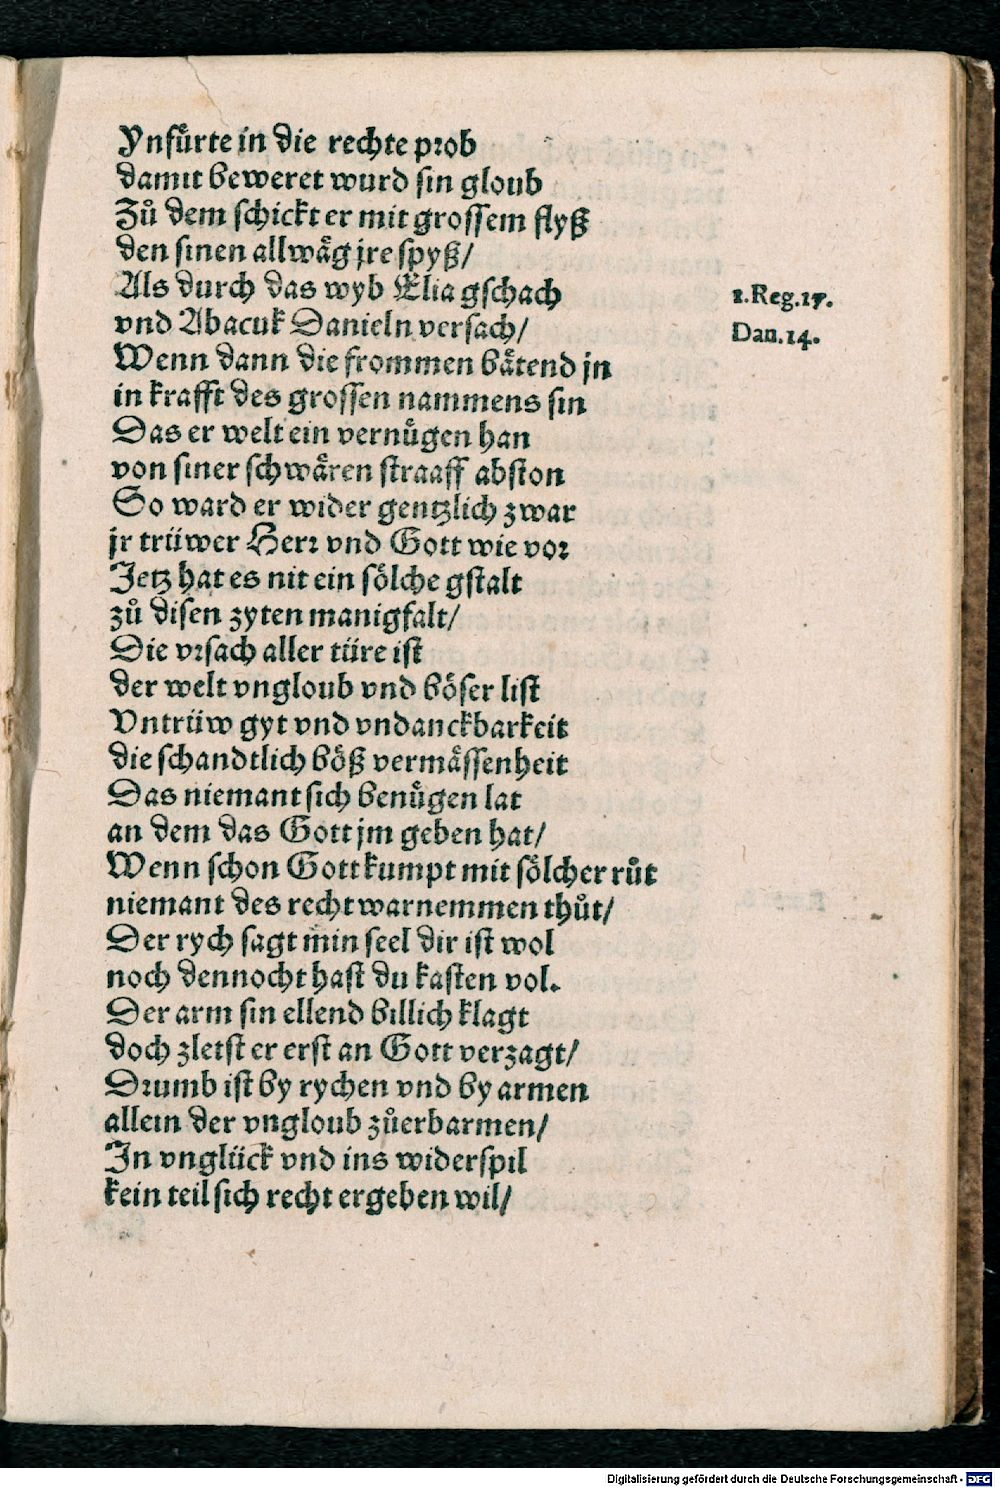 Ynfůrte in die rechte prob
damit beweret wurd sin gloub
Zů dem schickt er mit grossem flyß
den sinen allwäg jre spyß/
Als durch das wyb Elia gschach
1.Reg.17.
vnd Abacuk Danieln versach/
Dan.14.
Wenn dann die frommen bätend jn
in krafft des grossen nammens sin
Das er welt ein vernügen han
von siner schwären straaff abston
So ward er wider gentzlich zwar
jr trüwer Herr vnd Gott wie vor
Jetz hat es nit ein sölche gstalt
zů disen zyten manigfalt/
Die vrsach aller türe ist
der welt vngloub vnd böser list
Vntrüw gyt vnd vndanckbarkeit
die schandtlich böß vermässenheit
Das niemant sich benügen lat
an dem das Gott jm geben hat/
Wenn schon Gott kumpt mit sölcher růt
niemant des recht warnemmen thůt/
Der rych sagt min seel dir ist wol
noch dennocht hast du kasten vol.
Der arm sin ellend billich klagt
doch zletst er erst an Gott verzagt/
Drumb ist by rychen vnd by armen
allein der vngloub zůerbarmen/
In vnglück vnd ins widerspil
kein teil sich recht ergeben wil/
Digitalisierung gefördert durch die Deutsche Forschungsgemeinschaft - DFG